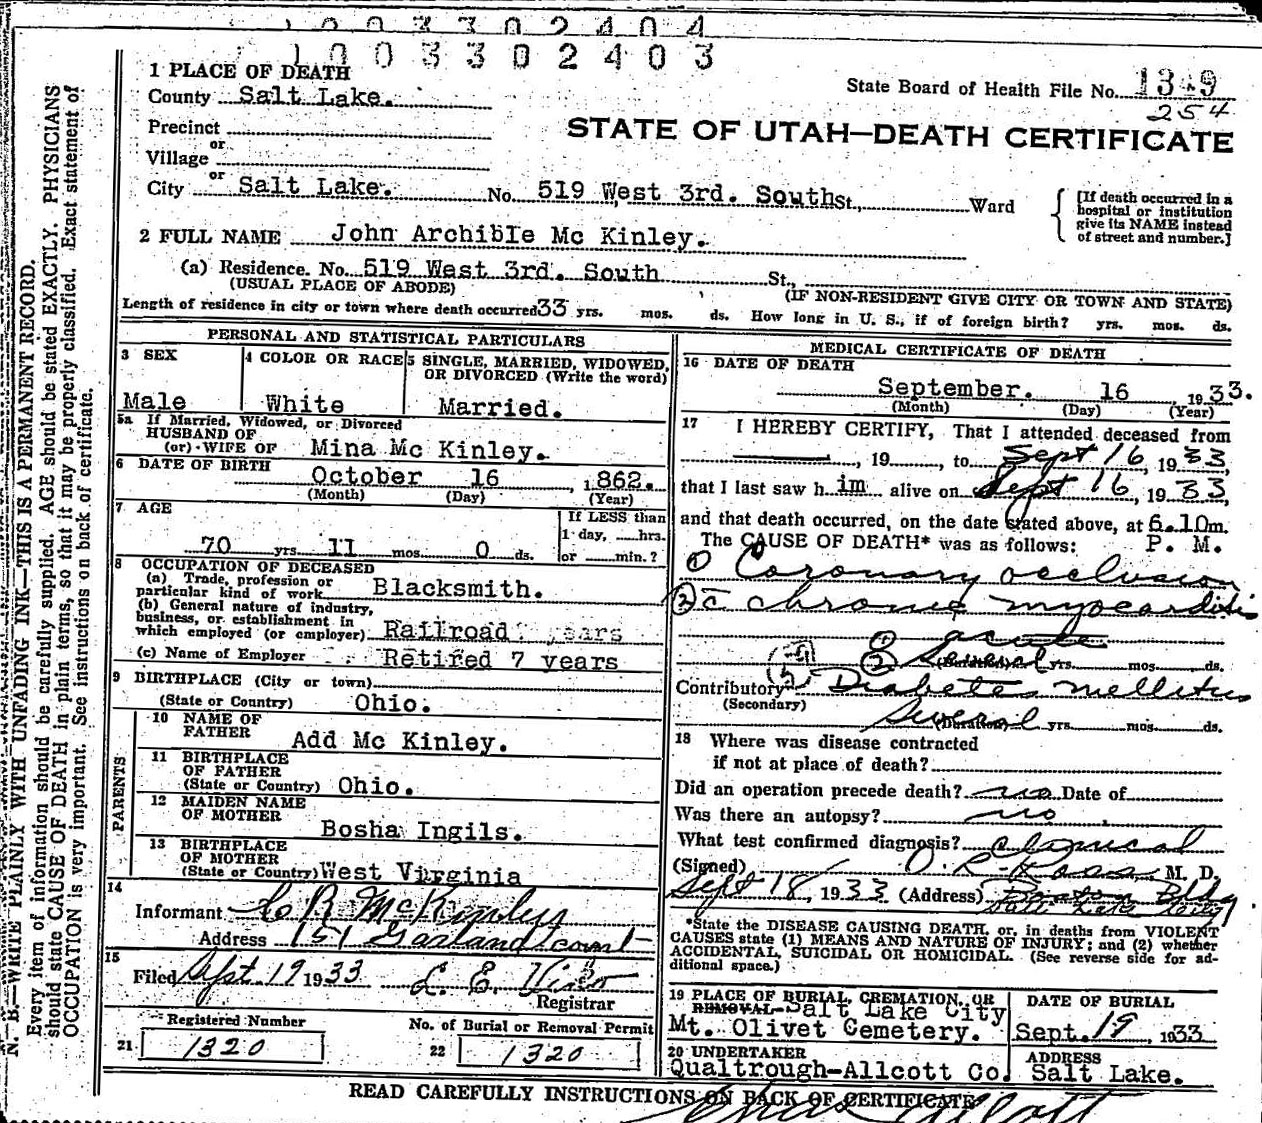 1003302404
1003302403
1 PLACE OF DEATH
County Salt Lake.
State Board of Health File No.
254
Precinct
or
Village
or
City Salt Lake. No. 519 West 3rd. South St., Ward
STATE OF UTAH—DEATH CERTIFICATE
[If death occurred in a
hospital or institution
give its NAME instead
of street and number.]
2 FULL NAME John Archible Mc Kinley.
(a) Residence. No. 519 West 3rd. South St.,
(USUAL PLACE OF ABODE) (IF NON-RESIDENT GIVE CITY OR TOWN AND STATE)
Length of residence in city or town where death occurred 33 yrs. mos. ds. How long in U. S., if of foreign birth? yrs. mos. ds.
PERSONAL AND STATISTICAL PARTICULARS
3 SEX
Male
4 COLOR OR RACE
White
5 SINGLE, MARRIED, WIDOWED,
OR DIVORCED (Write the word)
Married.
5a If Married, Widowed, or Divorced
HUSBAND OF
(or) WIFE OF Mina Mc Kinley.
6 DATE OF BIRTH
October 16, 1862.
(Month) (Day) (Year)
7 AGE
70 yrs. 11 mos. 0 ds.
If LESS than
1 day, hrs.
or min.?
8 OCCUPATION OF DECEASED
(a) Trade, profession or
particular kind of work Blacksmith.
(b) General nature of industry,
business, or establishment in
which employed (or employer) Railroad years
(c) Name of Employer Retired 7 years
9 BIRTHPLACE (City or town)
(State or Country) Ohio.
PARENTS
10 NAME OF
FATHER Add Mc Kinley.
11 BIRTHPLACE
OF FATHER
(State or Country) Ohio.
12 MAIDEN NAME
OF MOTHER
Bosha Ingils.
13 BIRTHPLACE
OF MOTHER
(State or Country) West Virginia
14
Informant C R McKinley
Address 151 Garland Court
15
Filed Sept. 19 1933
Registrar
Registered Number
21 1320
No. of Burial or Removal Permit
22 1320
MEDICAL CERTIFICATE OF DEATH
16 DATE OF DEATH
September. 16 1933.
(Month) (Day) (Year)
17 I HEREBY CERTIFY, That I attended deceased from
, 19, to Sept 16, 1933,
that I last saw h im alive on Sept 16, 1933,
and that death occurred, on the date stated above, at 6.10m.
The CAUSE OF DEATH* was as follows: P. M.
① Coronary occlusion
② c̄ chronic myocarditis
① acute
② Several (Duration) yrs. mos. ds.
Contributory Diabetes mellitus
(Secondary)
Several (Duration) yrs. mos. ds.
18 Where was disease contracted
if not at place of death?
Did an operation precede death? no Date of
Was there an autopsy? no
What test confirmed diagnosis? clinical
(Signed) M. D.
Sept 18, 1933 (Address) Boston Bldg
Salt Lake City
*State the DISEASE CAUSING DEATH, or, in deaths from VIOLENT
CAUSES state (1) MEANS AND NATURE OF INJURY; and (2) whether
ACCIDENTAL, SUICIDAL OR HOMICIDAL. (See reverse side for ad-
ditional space.)
19 PLACE OF BURIAL, CREMATION, OR
REMOVAL Salt Lake City
Mt. Olivet Cemetery.
DATE OF BURIAL
Sept. 19, 1933
20 UNDERTAKER
Qualtrough-Allcott Co.
ADDRESS
Salt Lake.
READ CAREFULLY INSTRUCTIONS ON BACK OF CERTIFICATE
N. B.—WRITE PLAINLY WITH UNFADING INK—THIS IS A PERMANENT RECORD.
Every item of information should be carefully supplied. AGE should be stated EXACTLY. PHYSICIANS
should state CAUSE OF DEATH in plain terms, so that it may be properly classified. Exact statement of
OCCUPATION is very important. See instructions on back of certificate.